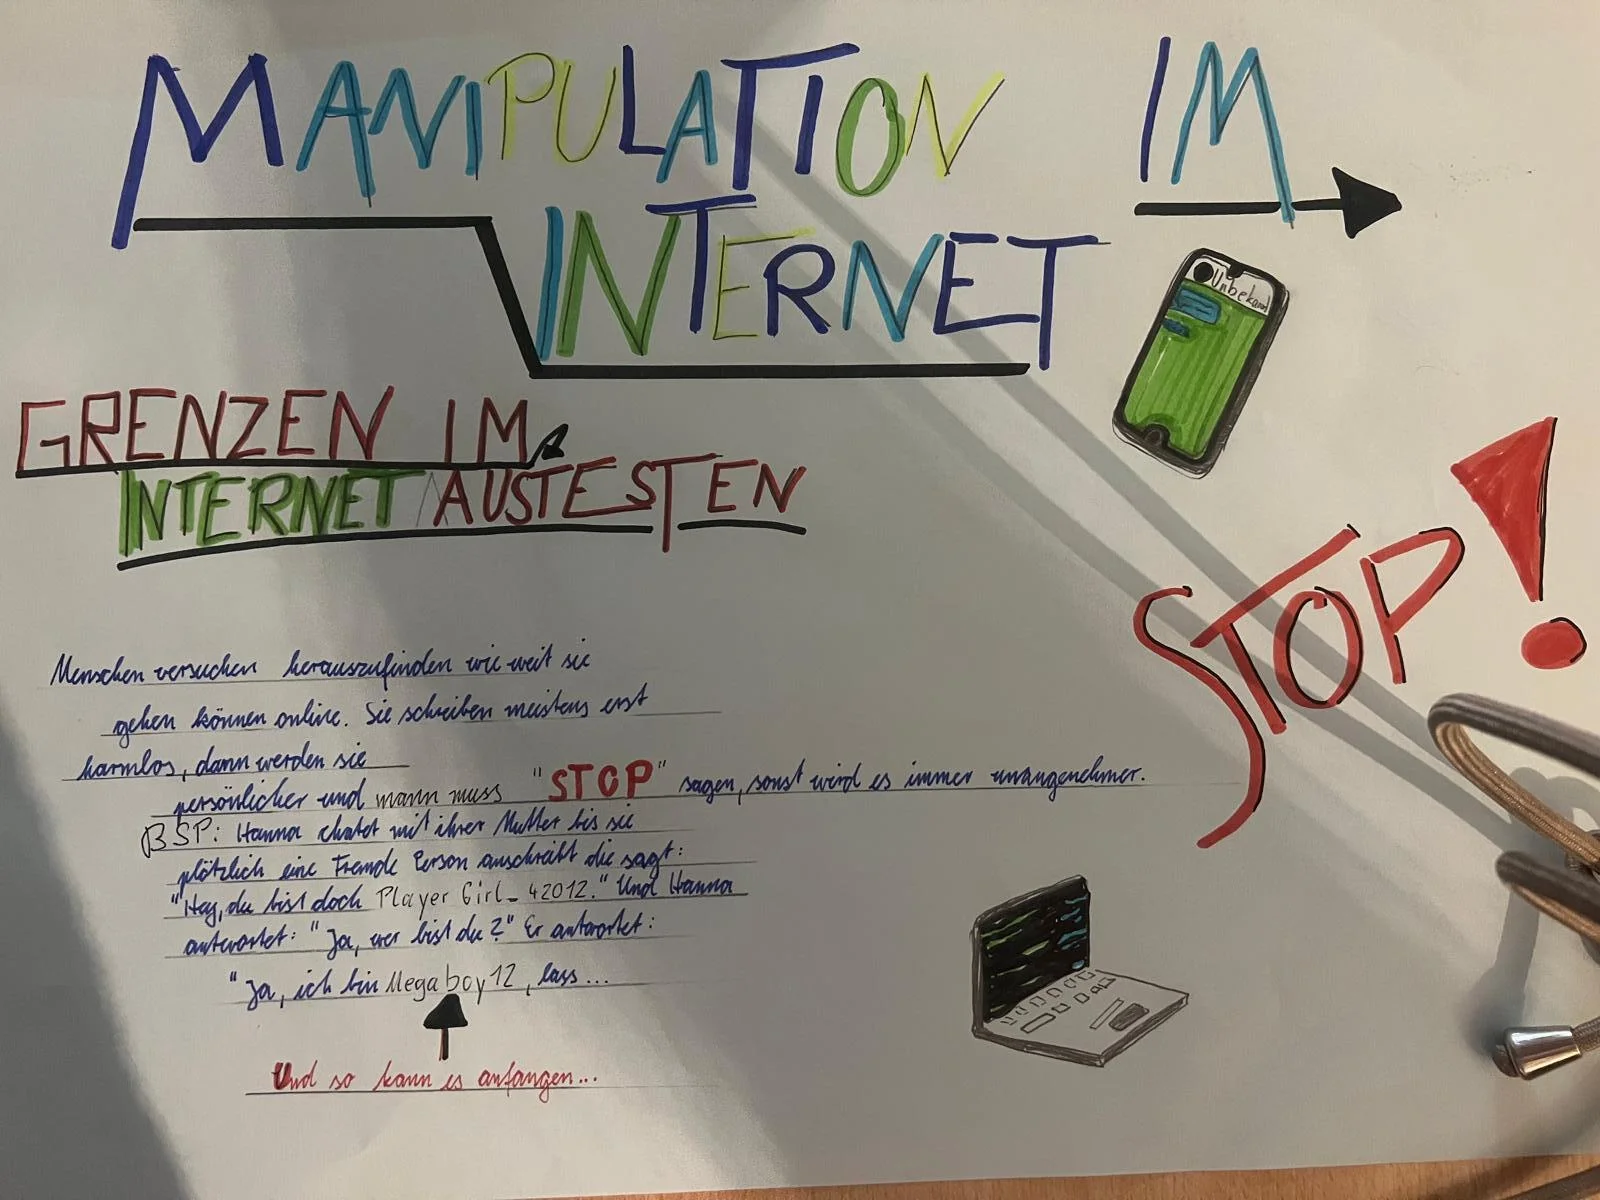 MANIPULATION IM
INTERNET
Unbekannt
GRENZEN IM
INTERNET AUSTESTEN
STOP!
Menschen versuchen herauszufinden wie weit sie
gehen können online. Sie schreiben meistens erst
harmlos, dann werden sie
persönlicher und mann muss "STOP" sagen, sonst wird es immer unangenehmer.
BSP: Hanna chatet mit ihrer Mutter bis sie
plötzlich eine Fremde Person anschreibt die sagt:
"Hey, du bist doch Player Girl_42012." Und Hanna
antwortet: "Ja, wer bist du?" Er antwortet:
"Ja, ich bin Megaboy12, lass...
Und so kann es anfangen...